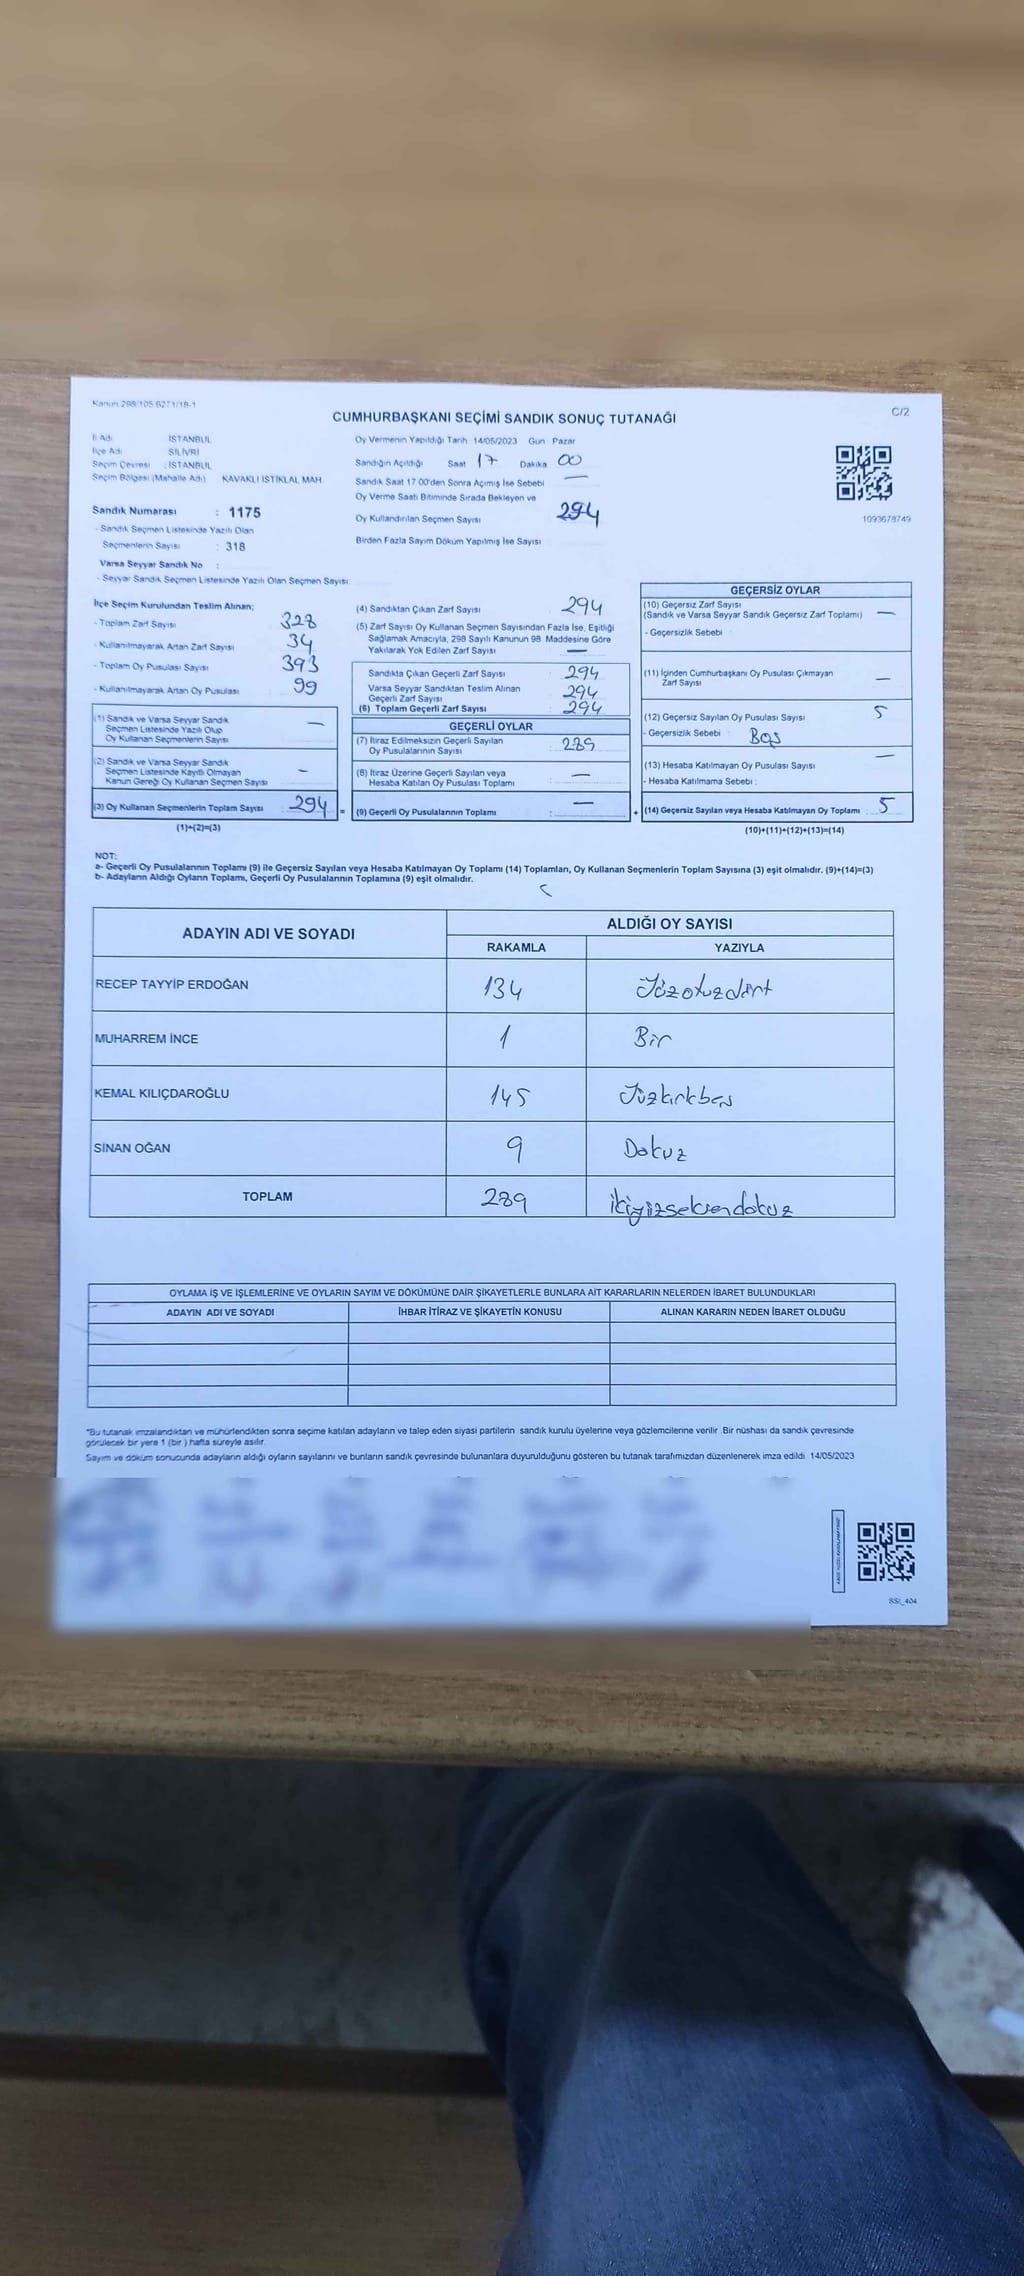 Kanun 298/105 6271/18-1
CUMHURBAŞKANI SEÇİMİ SANDIK SONUÇ TUTANAĞI
C/2
İl Adı İSTANBUL
İlçe Adı SİLİVRİ
Seçim Çevresi : İSTANBUL
Seçim Bölgesi (Mahalle Adı) KAVAKLI İSTİKLAL MAH
Sandık Numarası : 1175
- Sandık Seçmen Listesinde Yazılı Olan
Seçmenlerin Sayısı : 318
Varsa Seyyar Sandık No :
- Seyyar Sandık Seçmen Listesinde Yazılı Olan Seçmen Sayısı:
Oy Vermenin Yapıldığı Tarih 14/05/2023 Gün Pazar
Sandığın Açıldığı Saat 17 Dakika 00
Sandık Saat 17 00'den Sonra Açımış İse Sebebi —
Oy Verme Saati Bitiminde Sırada Bekleyen ve
Oy Kullandırılan Seçmen Sayısı 294
Birden Fazla Sayım Döküm Yapılmış İse Sayısı
1093678749
İlçe Seçim Kurulundan Teslim Alınan;
- Toplam Zarf Sayısı 328
- Kullanılmayarak Artan Zarf Sayısı 34
- Toplam Oy Pusulası Sayısı 393
- Kullanılmayarak Artan Oy Pusulası 99
(1) Sandık ve Varsa Seyyar Sandık
Seçmen Listesinde Yazılı Olup
Oy Kullanan Seçmenlerin Sayısı —
(2) Sandık ve Varsa Seyyar Sandık
Seçmen Listesinde Kayıtlı Olmayan
Kanun Gereği Oy Kullanan Seçmen Sayısı -
(3) Oy Kullanan Seçmenlerin Toplam Sayısı 294 =
(1)+(2)=(3)
(4) Sandıktan Çıkan Zarf Sayısı 294
(5) Zarf Sayısı Oy Kullanan Seçmen Sayısından Fazla İse, Eşitliği
Sağlamak Amacıyla, 298 Sayılı Kanunun 98. Maddesine Göre
Yakılarak Yok Edilen Zarf Sayısı —
Sandıkta Çıkan Geçerli Zarf Sayısı 294
Varsa Seyyar Sandıktan Teslim Alınan
Geçerli Zarf Sayısı 294
(6) Toplam Geçerli Zarf Sayısı 294
GEÇERLİ OYLAR
(7) İtiraz Edilmeksizin Geçerli Sayılan
Oy Pusulalarının Sayısı 289
(8) İtiraz Üzerine Geçerli Sayılan veya
Hesaba Katılan Oy Pusulası Toplamı —
(9) Geçerli Oy Pusulalarının Toplamı : — +
GEÇERSİZ OYLAR
(10) Geçersiz Zarf Sayısı
(Sandık ve Varsa Seyyar Sandık Geçersiz Zarf Toplamı) —
- Geçersizlik Sebebi
(11) İçinden Cumhurbaşkanı Oy Pusulası Çıkmayan
Zarf Sayısı —
(12) Geçersiz Sayılan Oy Pusulası Sayısı 5
- Geçersizlik Sebebi Boş
(13) Hesaba Katılmayan Oy Pusulası Sayısı —
- Hesaba Katılmama Sebebi :
(14) Geçersiz Sayılan veya Hesaba Katılmayan Oy Toplamı 5
(10)+(11)+(12)+(13)=(14)
NOT:
a- Geçerli Oy Pusulalarının Toplamı (9) ile Geçersiz Sayılan veya Hesaba Katılmayan Oy Toplamı (14) Toplamları, Oy Kullanan Seçmenlerin Toplam Sayısına (3) eşit olmalıdır. (9)+(14)=(3)
b- Adayların Aldığı Oyların Toplamı, Geçerli Oy Pusulalarının Toplamına (9) eşit olmalıdır.
ADAYIN ADI VE SOYADI ALDIĞI OY SAYISI
RAKAMLA YAZIYLA
RECEP TAYYİP ERDOĞAN 134 Yüzotuzdört
MUHARREM İNCE 1 Bir
KEMAL KILIÇDAROĞLU 145 Yüzkırkbeş
SİNAN OĞAN 9 Dokuz
TOPLAM 289 ikiyüzseksendokuz
OYLAMA İŞ VE İŞLEMLERİNE VE OYLARIN SAYIM VE DÖKÜMÜNE DAİR ŞİKAYETLERLE BUNLARA AİT KARARLARIN NELERDEN İBARET BULUNDUKLARI
ADAYIN ADI VE SOYADI İHBAR İTİRAZ VE ŞİKAYETİN KONUSU ALINAN KARARIN NEDEN İBARET OLDUĞU
*Bu tutanak imzalandıktan ve mühürlendikten sonra seçime katılan adayların ve talep eden siyasi partilerin sandık kurulu üyelerine veya gözlemcilerine verilir Bir nüshası da sandık çevresinde
görülecek bir yere 1 (bir ) hafta süreyle asılır.
Sayım ve döküm sonucunda adayların aldığı oyların sayılarını ve bunların sandık çevresinde bulunanlara duyurulduğunu gösteren bu tutanak tarafımızdan düzenlenerek imza edildi 14/05/2023
SSI_404